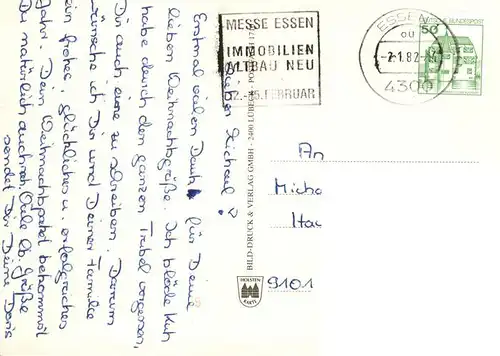 MESSE ESSEN
IMMOBILIEN
ALTBAU NEU
12.-15.FEBRUAR
ESSEN
ou
-2.1.82
4300
DEUTSCHE BUNDESPOST
50
Lieber Michael!
Erstmal vielen Dank für Deine
lieben Weihnachtsgrüße. Ich blöde Kuh
habe durch den ganzen Trubel vergessen,
Dir auch eine zu schreiben. Darum
wünsche ich Dir und Deiner Familie
ein frohes, glückliches u. erfolgreiches
Jahr. Dein Weihnachtspaket bekommst
Du natürlich auch noch. Viele lb. Grüße
sendet Dir Deine
BILD-DRUCK & VERLAG GMBH · 2400 LÜBECK
HOLSTEN
An
Micha
9101